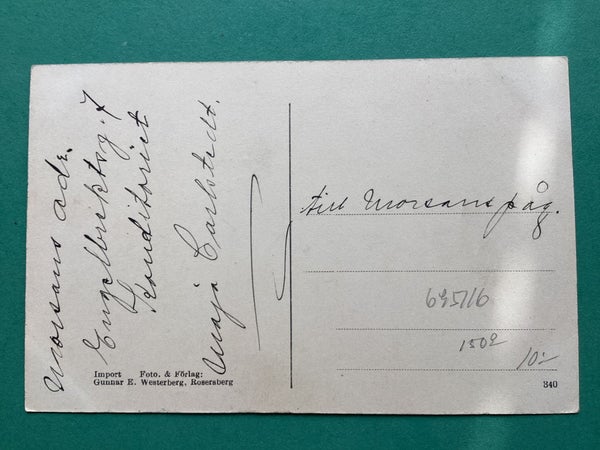 Morsans adr.
Engelbrektsg. 7
Konditoriet
Maja Carlstedt.
till Morsans påg.
695716
150:-
10:-
Import Foto. & Förlag:
Gunnar E. Westerberg, Rosersberg
340